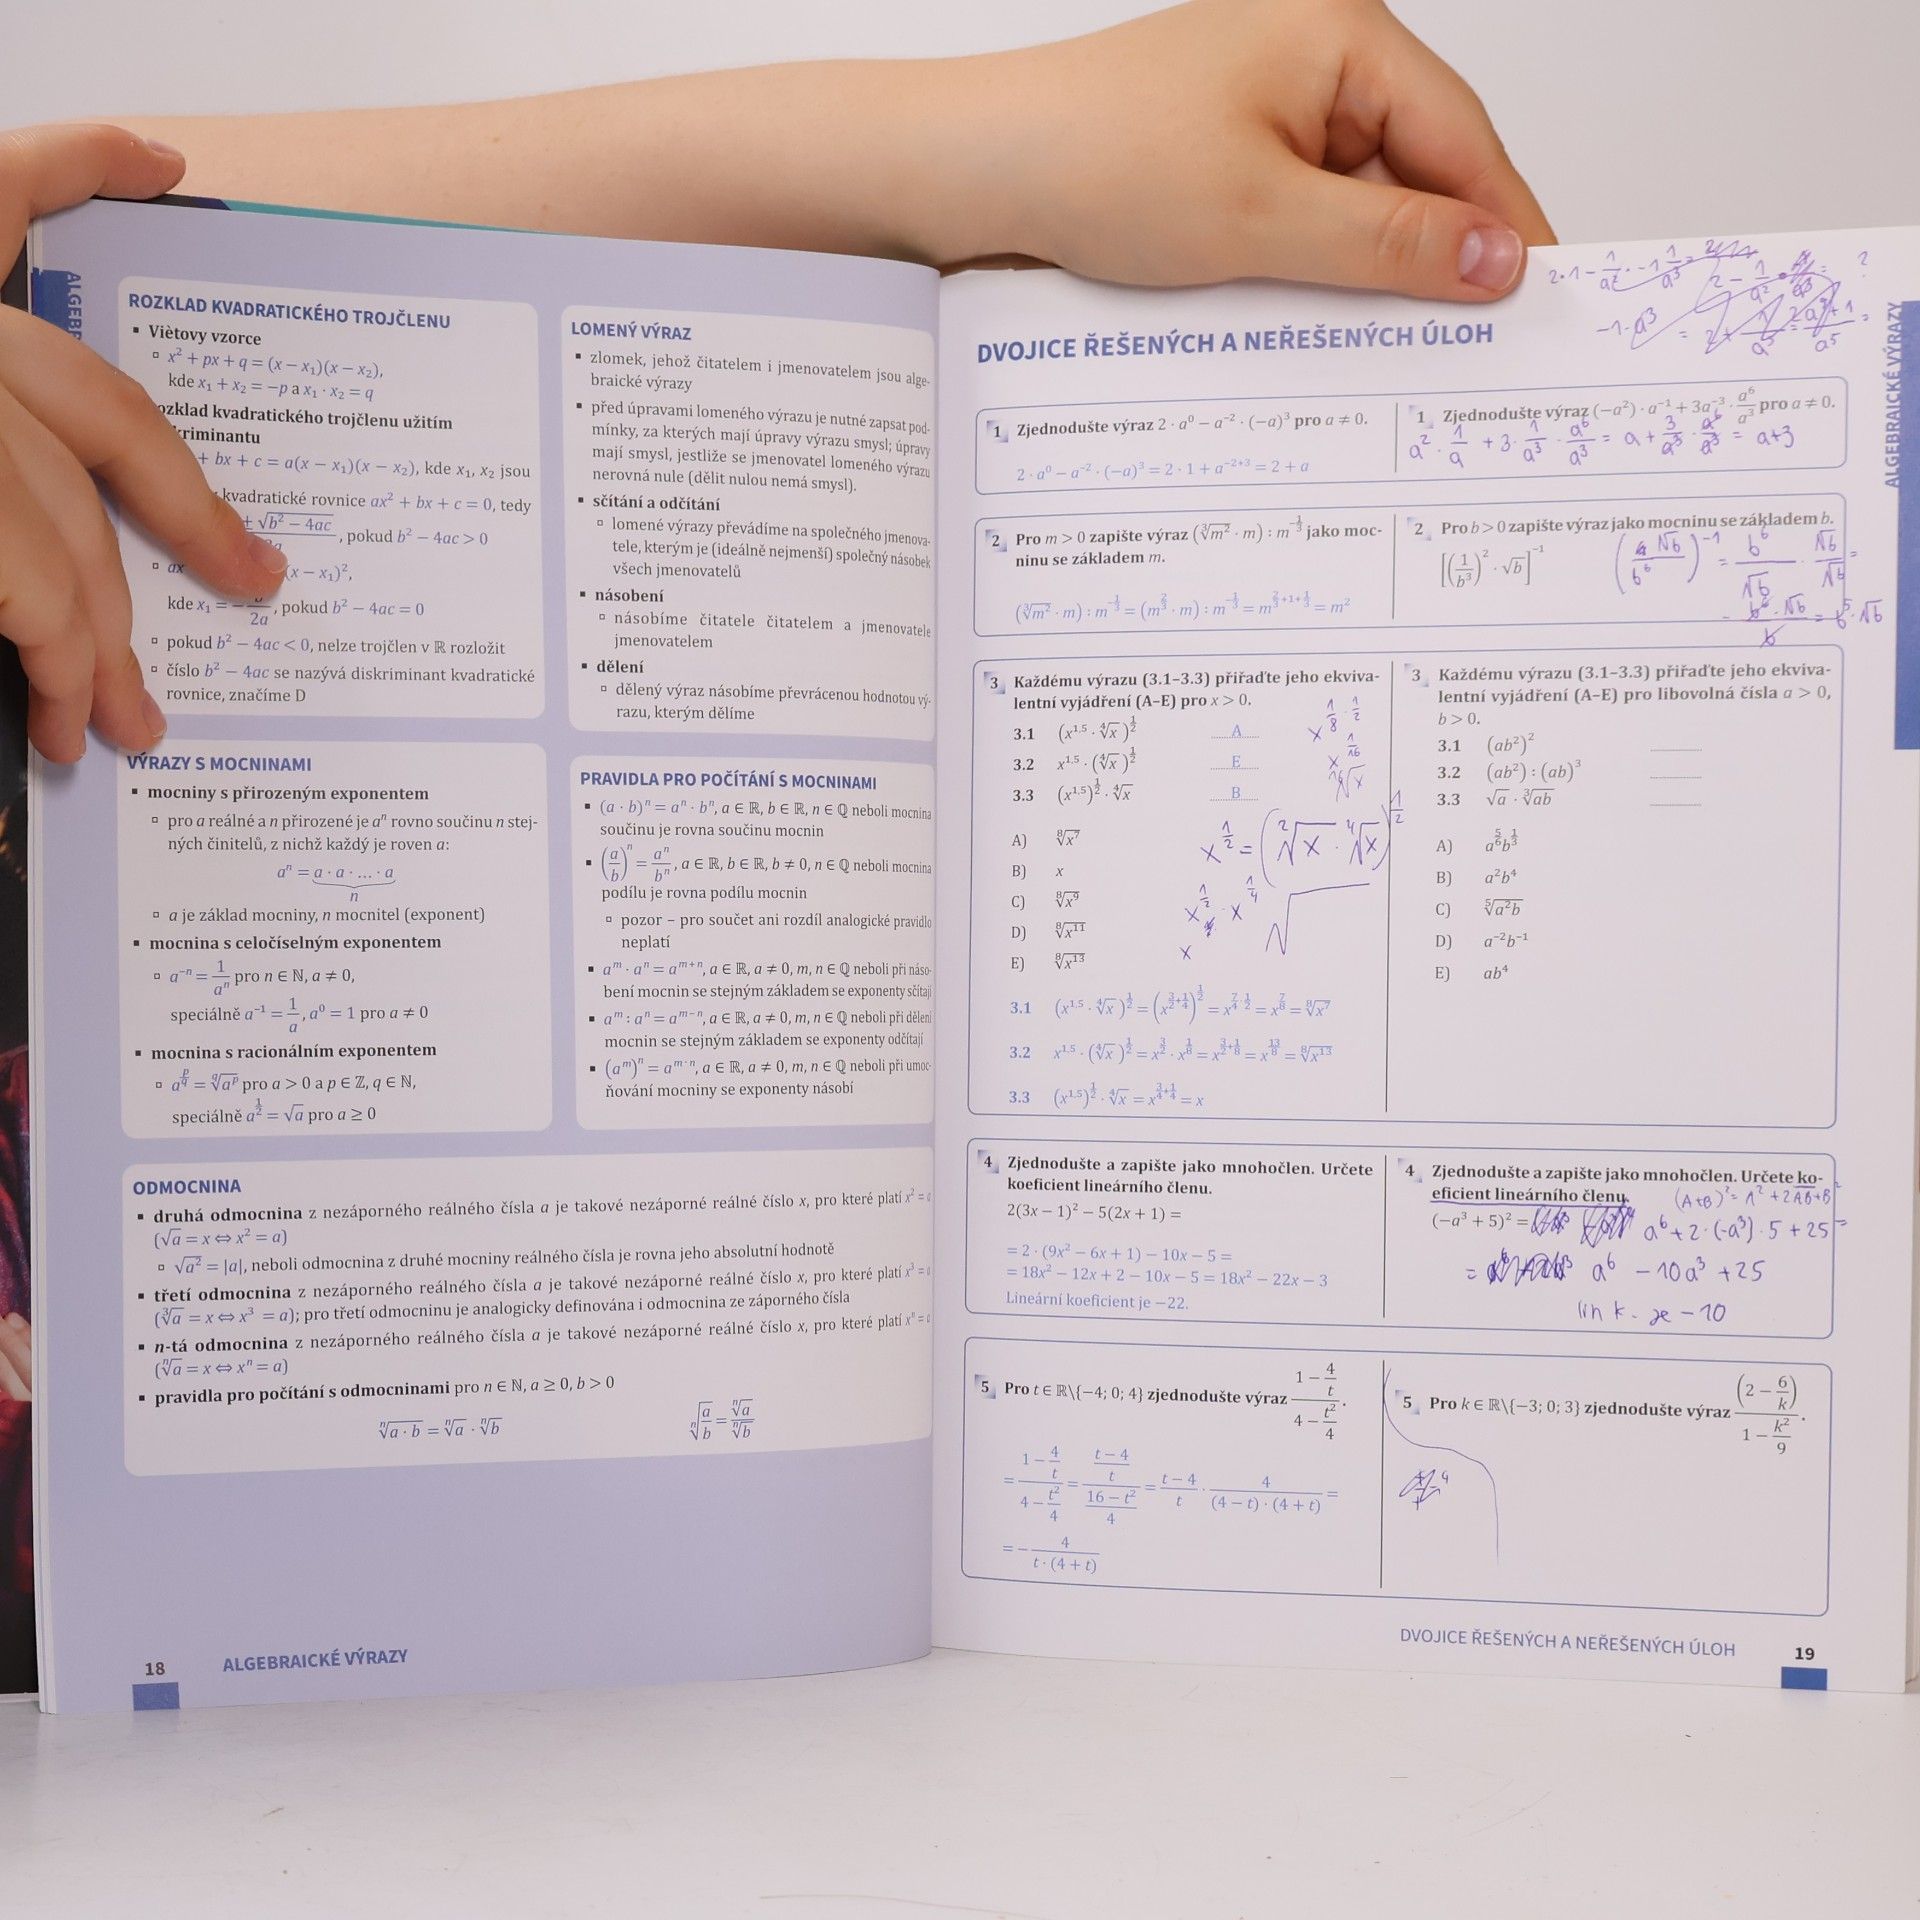 ROZKLAD KVADRATICKÉHO TROJČLENU
▪ Viètovy vzorce
▫ x² + px + q = (x − x₁)(x − x₂),
kde x₁ + x₂ = −p a x₁ · x₂ = q
ozklad kvadratického trojčlenu užitím
kriminantu
+ bx + c = a(x − x₁)(x − x₂), kde x₁, x₂ jsou
kvadratické rovnice ax² + bx + c = 0, tedy
± √(b² − 4ac) , pokud b² − 4ac > 0
▫ ax (x − x₁)²,
kde x₁ = −b/2a, pokud b² − 4ac = 0
▫ pokud b² − 4ac < 0, nelze trojčlen v ℝ rozložit
▫ číslo b² − 4ac se nazývá diskriminant kvadratické
rovnice, značíme D
LOMENÝ VÝRAZ
▪ zlomek, jehož čitatelem i jmenovatelem jsou alge-
braické výrazy
▪ před úpravami lomeného výrazu je nutné zapsat pod-
mínky, za kterých mají úpravy výrazu smysl; úpravy
mají smysl, jestliže se jmenovatel lomeného výrazu
nerovná nule (dělit nulou nemá smysl).
▪ sčítání a odčítání
▫ lomené výrazy převádíme na společného jmenova-
tele, kterým je (ideálně nejmenší) společný násobek
všech jmenovatelů
▪ násobení
▫ násobíme čitatele čitatelem a jmenovatele
jmenovatelem
▪ dělení
▫ dělený výraz násobíme převrácenou hodnotou vý-
razu, kterým dělíme
VÝRAZY S MOCNINAMI
▪ mocniny s přirozeným exponentem
▫ pro a reálné a n přirozené je aⁿ rovno součinu n stej-
ných činitelů, z nichž každý je roven a:
aⁿ = a · a · … · a
n
▫ a je základ mocniny, n mocnitel (exponent)
▪ mocnina s celočíselným exponentem
▫ a⁻ⁿ = 1/aⁿ pro n ∈ ℕ, a ≠ 0,
speciálně a⁻¹ = 1/a, a⁰ = 1 pro a ≠ 0
▪ mocnina s racionálním exponentem
▫ a^(p/q) = ᵠ√aᵖ pro a > 0 a p ∈ ℤ, q ∈ ℕ,
speciálně a^(1/2) = √a pro a ≥ 0
PRAVIDLA PRO POČÍTÁNÍ S MOCNINAMI
▪ (a · b)ⁿ = aⁿ · bⁿ, a ∈ ℝ, b ∈ ℝ, n ∈ ℚ neboli mocnina
součinu je rovna součinu mocnin
▪ (a/b)ⁿ = aⁿ/bⁿ, a ∈ ℝ, b ∈ ℝ, b ≠ 0, n ∈ ℚ neboli mocnina
podílu je rovna podílu mocnin
▫ pozor – pro součet ani rozdíl analogické pravidlo
neplatí
▪ aᵐ · aⁿ = aᵐ⁺ⁿ, a ∈ ℝ, a ≠ 0, m, n ∈ ℚ neboli při náso-
bení mocnin se stejným základem se exponenty sčítají
▪ aᵐ : aⁿ = aᵐ⁻ⁿ, a ∈ ℝ, a ≠ 0, m, n ∈ ℚ neboli při dělení
mocnin se stejným základem se exponenty odčítají
▪ (aᵐ)ⁿ = a^(m·n), a ∈ ℝ, a ≠ 0, m, n ∈ ℚ neboli při umoc-
ňování mocniny se exponenty násobí
ODMOCNINA
▪ druhá odmocnina z nezáporného reálného čísla a je takové nezáporné reálné číslo x, pro které platí x² = a
(√a = x ⇔ x² = a)
▫ √a² = |a|, neboli odmocnina z druhé mocniny reálného čísla je rovna jeho absolutní hodnotě
▪ třetí odmocnina z nezáporného reálného čísla a je takové nezáporné reálné číslo x, pro které platí x³ = a
(³√a = x ⇔ x³ = a); pro třetí odmocninu je analogicky definována i odmocnina ze záporného čísla
▪ n-tá odmocnina z nezáporného reálného čísla a je takové nezáporné reálné číslo x, pro které platí xⁿ = a
(ⁿ√a = x ⇔ xⁿ = a)
▪ pravidla pro počítání s odmocninami pro n ∈ ℕ, a ≥ 0, b > 0
ⁿ√(a · b) = ⁿ√a · ⁿ√b ⁿ√(a/b) = ⁿ√a/ⁿ√b
18 ALGEBRAICKÉ VÝRAZY
ALGEBRAICKÉ VÝRAZY
DVOJICE ŘEŠENÝCH A NEŘEŠENÝCH ÚLOH
1 Zjednodušte výraz 2 · a⁰ − a⁻² · (−a)³ pro a ≠ 0.
2 · a⁰ − a⁻² · (−a)³ = 2 · 1 + a⁻²⁺³ = 2 + a
1 Zjednodušte výraz (−a²) · a⁻¹ + 3a⁻³ · a⁶/a³ pro a ≠ 0.
a² · 1/a + 3 · 1/a³ · a⁶/a³ = a + 3/a³ · a⁶/a³ = a+3
2 Pro m > 0 zapište výraz (³√m² · m) : m^(−1/3) jako moc-
ninu se základem m.
(³√m² · m) : m^(−1/3) = (m^(2/3) · m) : m^(−1/3) = m^(2/3+1+1/3) = m²
2 Pro b > 0 zapište výraz jako mocninu se základem b.
[(1/b³)² · √b]⁻¹
(√b/b⁶)⁻¹ = b⁶/√b · √b/√b =
b⁶·√b/b = b⁵·√b
3 Každému výrazu (3.1–3.3) přiřaďte jeho ekviva-
lentní vyjádření (A–E) pro x > 0.
3.1 (x^1,5 · ⁴√x)^(1/2) A
3.2 x^1,5 · (⁴√x)^(1/2) E
3.3 (x^1,5)^(1/2) · ⁴√x B
A) ⁸√x⁷
B) x
C) ⁸√x⁹
D) ⁸√x¹¹
E) ⁸√x¹³
3.1 (x^1,5 · ⁴√x)^(1/2) = (x^(3/2+1/4))^(1/2) = x^(7/4·1/2) = x^(7/8) = ⁸√x⁷
3.2 x^1,5 · (⁴√x)^(1/2) = x^(3/2) · x^(1/8) = x^(3/2+1/8) = x^(13/8) = ⁸√x¹³
3.3 (x^1,5)^(1/2) · ⁴√x = x^(3/4+1/4) = x
3 Každému výrazu (3.1–3.3) přiřaďte jeho ekviva-
lentní vyjádření (A–E) pro libovolná čísla a > 0,
b > 0.
3.1 (ab²)²
3.2 (ab²) : (ab)³
3.3 √a · ³√ab
A) a^(5/6)b^(1/3)
B) a²b⁴
C) ⁵√a²b
D) a⁻²b⁻¹
E) ab⁴
4 Zjednodušte a zapište jako mnohočlen. Určete
koeficient lineárního členu.
2(3x − 1)² − 5(2x + 1) =
= 2 · (9x² − 6x + 1) − 10x − 5 =
= 18x² − 12x + 2 − 10x − 5 = 18x² − 22x − 3
Lineární koeficient je −22.
4 Zjednodušte a zapište jako mnohočlen. Určete ko-
eficient lineárního členu.
(−a³ + 5)² = a⁶ + 2·(−a³)·5 + 25 =
= a⁶ − 10a³ + 25
lin k. je −10
5 Pro t ∈ ℝ\{−4; 0; 4} zjednodušte výraz (1 − 4/t)/(4 − t²/4).
= (1 − 4/t)/(4 − t²/4) = ((t − 4)/t)/((16 − t²)/4) = (t − 4)/t · 4/((4 − t) · (4 + t)) =
= − 4/(t · (4 + t))
5 Pro k ∈ ℝ\{−3; 0; 3} zjednodušte výraz (2 − 6/k)/(1 − k²/9).
DVOJICE ŘEŠENÝCH A NEŘEŠENÝCH ÚLOH 19